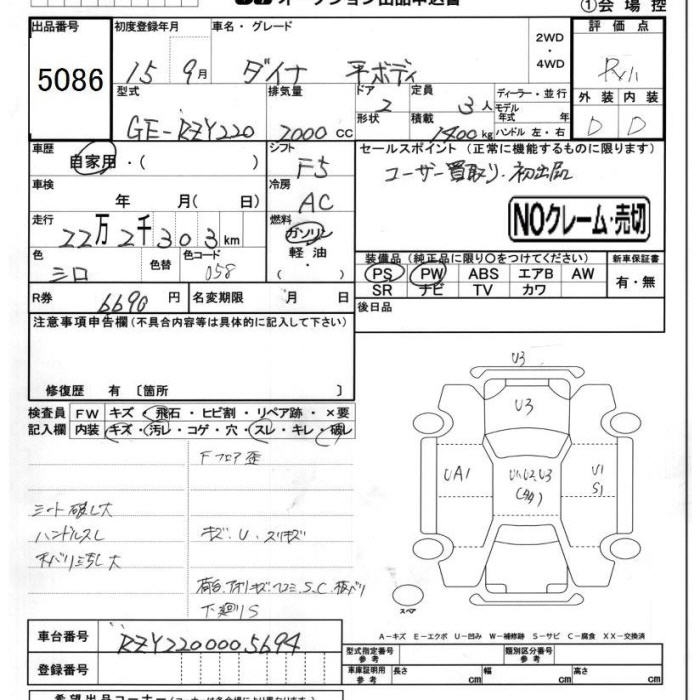 オークション出品申込書
①会場控
出品番号 初度登録年月 車名・グレード 2WD・4WD 評価点
5086 15 9月 ダイナ 平ボディ
型式 排気量 ドア 定員 ディーラー・並行 外装 内装
GE-RZY220 2000cc 2 3人 モデル年式 年
形状 積載 1400kg ハンドル 左・右 D D
車歴 シフト セールスポイント(正常に機能するものに限ります)
自家用・( ) F5 ユーザー買取り・初出品
車検 冷房
年 月( 日) AC
NOクレーム・売切
走行 燃料
22万2千303km ガソリン
軽油
( )
色 色替 色コード 装備品(純正品に限り○をつけてください) 新車保証書
シロ 058 PS PW ABS エアB AW 有・無
SR ナビ TV カワ
R券 6690円 名変期限 月 日 後日品
注意事項申告欄(不具合内容等は具体的に記入して下さい)
修復歴 有 〔箇所 〕
検査員 FW キズ・飛石・ヒビ割・リペア跡・×要
記入欄 内装 キズ・汚レ・コゲ・穴・スレ・キレ・破レ
Fフロア歪
シート破レ大
ハンドルスレ キズ・U・スリキズ
下廻りS
U3
U3
UA1 U1,U2,U3 U1
S1
スペア
A-キズ E-エクボ U-凹み W-補修跡 S-サビ C-腐食 XX-交換済
車台番号 RZY220 0005694
登録番号
型式指定番号 参考 類別区分番号 参考
車庫証明用 参考 長さ cm 幅 cm 高さ cm
希望出品コーナー